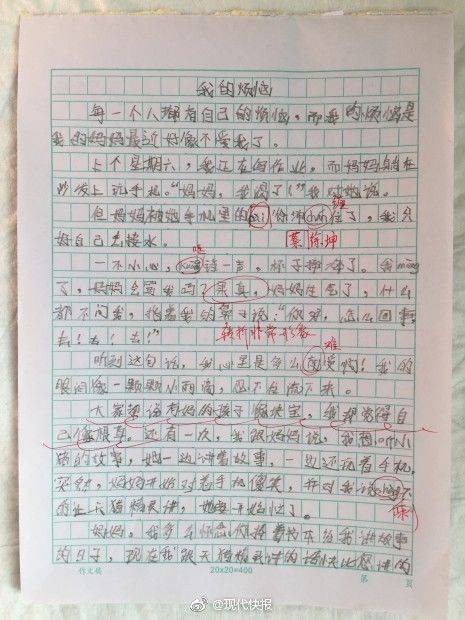 我的烦恼
每一个人都有自己的烦恼，而我的烦恼是
我的妈妈最近好像不爱我了。
上个星期六，我正在写作业，而妈妈躺在
沙发上玩手机。“妈妈，我渴了！”我对她说。
但妈妈被她手机里的 你
住了，我只
缠
好自己去接水。
蔡徐坤
哐
一不小心， 一声，杯子摔碎了。我
了，妈妈会骂我吗？果真，妈妈生气了，什么
都不问我，指着我的鼻子说：“你 ，怎么回事，
去！去！去！”
转折非常形象
难
听到这句话，我心里是多么 受啊！我的
眼泪像一颗颗小雨滴，忍不住流下来。
大家都说有妈的孩子像块宝，我却觉得自
己像根草。还有一次，我跟妈妈说，我想听小
猪的故事，她一边讲着故事，一边还看着手机，
突然，妈妈开始对着手机傻笑，并对我说
天猫精灵讲，她
妈妈，我多么怀念你 本给我讲故事
的日子，现在我跟天猫精灵讲的话 比您讲的
作文稿
20×20=400
第 页
@现代快报